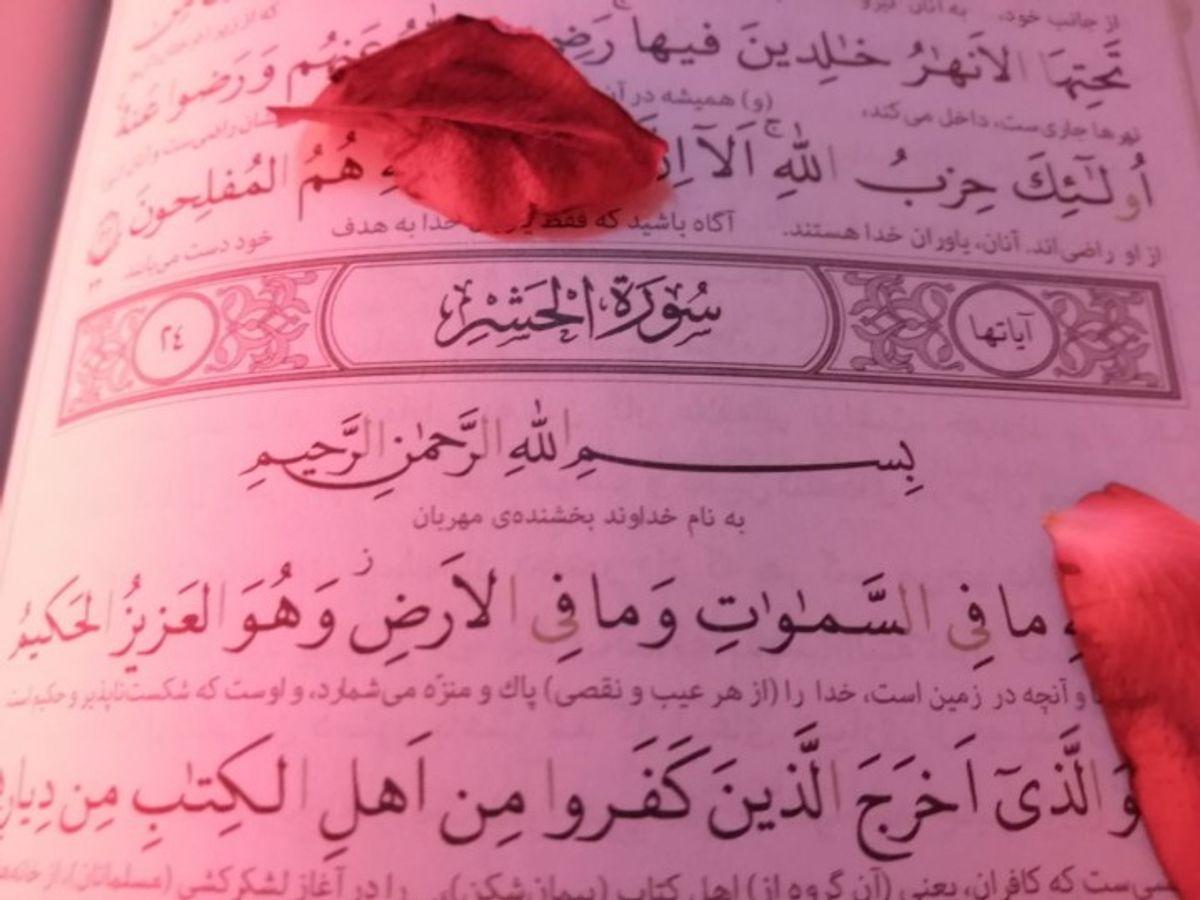 از جانب خود، به آنان نیرو
تَحتِهَا الاَنهٰرُ خٰلِدینَ فیها رَضِیَ عَنهُم وَ رَضوا عَنهُ
نهرها جاری‌ست، داخل می‌کند، (و) همیشه در آن
اُولٰئِكَ حِزبُ اللهِ اَلآ اِنَّ هُمُ المُفلِحونَ
از او راضی‌اند. آنان، یاوران خدا هستند. آگاه باشید که فقط خدا به هدف خود دست می‌یابند
آیاتها سُورَةُ الحَشْرِ ٢٤
بِسمِ اللهِ الرَّحمٰنِ الرَّحیمِ
به نام خداوند بخشنده‌ی مهربان
ما فِی السَّمٰوٰتِ وَ ما فِی الاَرضِ وَ هُوَ العَزیزُ الحَکیمُ
و آنچه در زمین است، خدا را (از هر عیب و نقصی) پاك و منزّه می‌شمارد، و اوست که شکست‌ناپذیر و حکیم است
الَّذیٓ اَخرَجَ الَّذینَ کَفَروا مِن اَهلِ الکِتٰبِ مِن دِیارِ
که کافران، یعنی (آن گروه از) اهل کتاب (پیمان‌شکن)، را در آغاز لشکرکشی (مسلمانان)، از